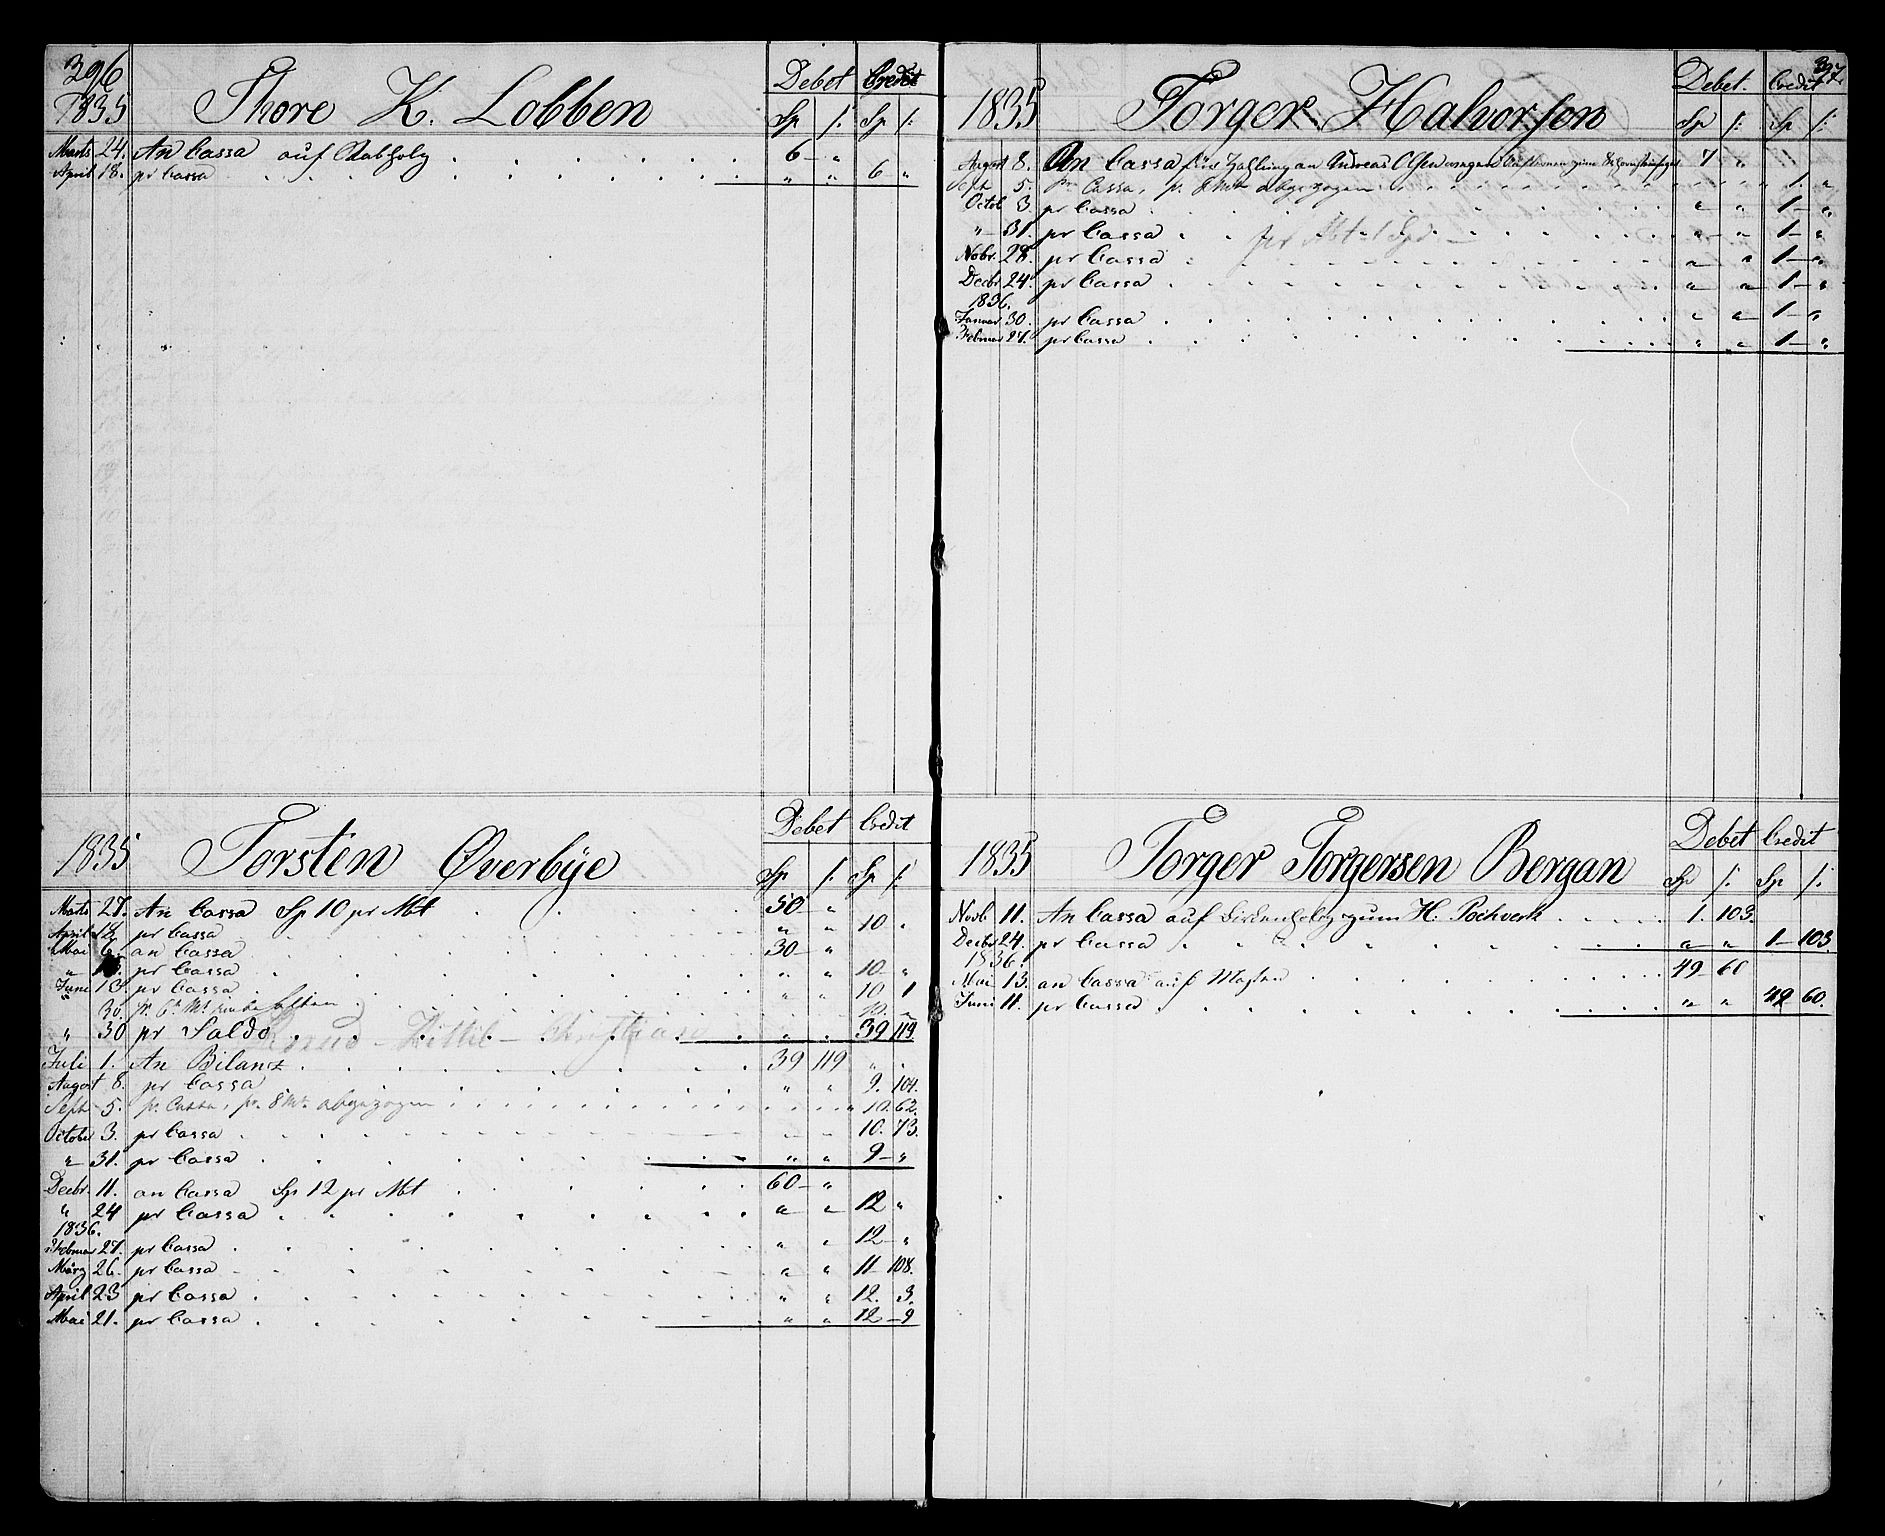 296
1835 Thore K. Lobben Debet Credit
Sp /: Sp /:
Marts 24. An Cassa auf Rabholz 6 – "
April 18. pr Cassa " " 6 "
1835 Torsten Øverbÿe Debet Credit
Sp /: Sp /:
Marts 27. An Cassa Sp 10 pr Mbt 50 – "
April 18. pr Cassa " " 10 "
Mai 6. an Cassa 30 – "
" pr Cassa " " 10 – "
Juni 13. pr Cassa " " 10 1
" 30. pr 6t Mt
" 30 pr Saldo " " 39 119.
Juli 1. An Bilanz 39 119 " "
August 8. pr Cassa " " 9. 104.
Sept. 5. pr Cassa, pr. 8 Mt abgezogen " 10. 62.
Octobr 3. pr Cassa " " 10. 73.
" 31. pr Cassa " " 9 – "
Decbr. 11. an Cassa Sp 12 pr Mbt 60 – "
" 24 pr Cassa " " 12 "
1836.
Februar 27. pr Cassa " " 12 – "
März 26. pr Cassa " " 11 – 108.
April 23 pr Cassa " " 12. 3.
Mai 21. pr Cassa " " 12 – 9
397.
1835 Torger Halvorsen Debet. Credit
Sp /: Sp /:
August 8. An Cassa für Zahlung an Andreas Olsen wegen 7 "
Sept. 5. pr Cassa, pr. 8 Mt abgezogen " " 1. "
Octob 3. pr Cassa " " 1 – "
" 31. pr Cassa pr Mbt 1 Spd. " " 1 – "
Nobr. 28. pr Cassa " " 1 – "
Decbr 24. pr Cassa " " 1 – "
1836.
Januar 30. pr Cassa " " 1 – "
Februar 27. pr Cassa " " 1 – "
1835 Torger Torgersen Bergan Debet Credit
Sp /: Sp /:
Novb 11. An Cassa auf zum H. Pochverk 1. 103.
Decbr 24. pr Cassa " " 1 – 103.
1836.
Mai 13. an Cassa auf Masten 49 – 60
Juni 11. pr Cassa " " 49 60.